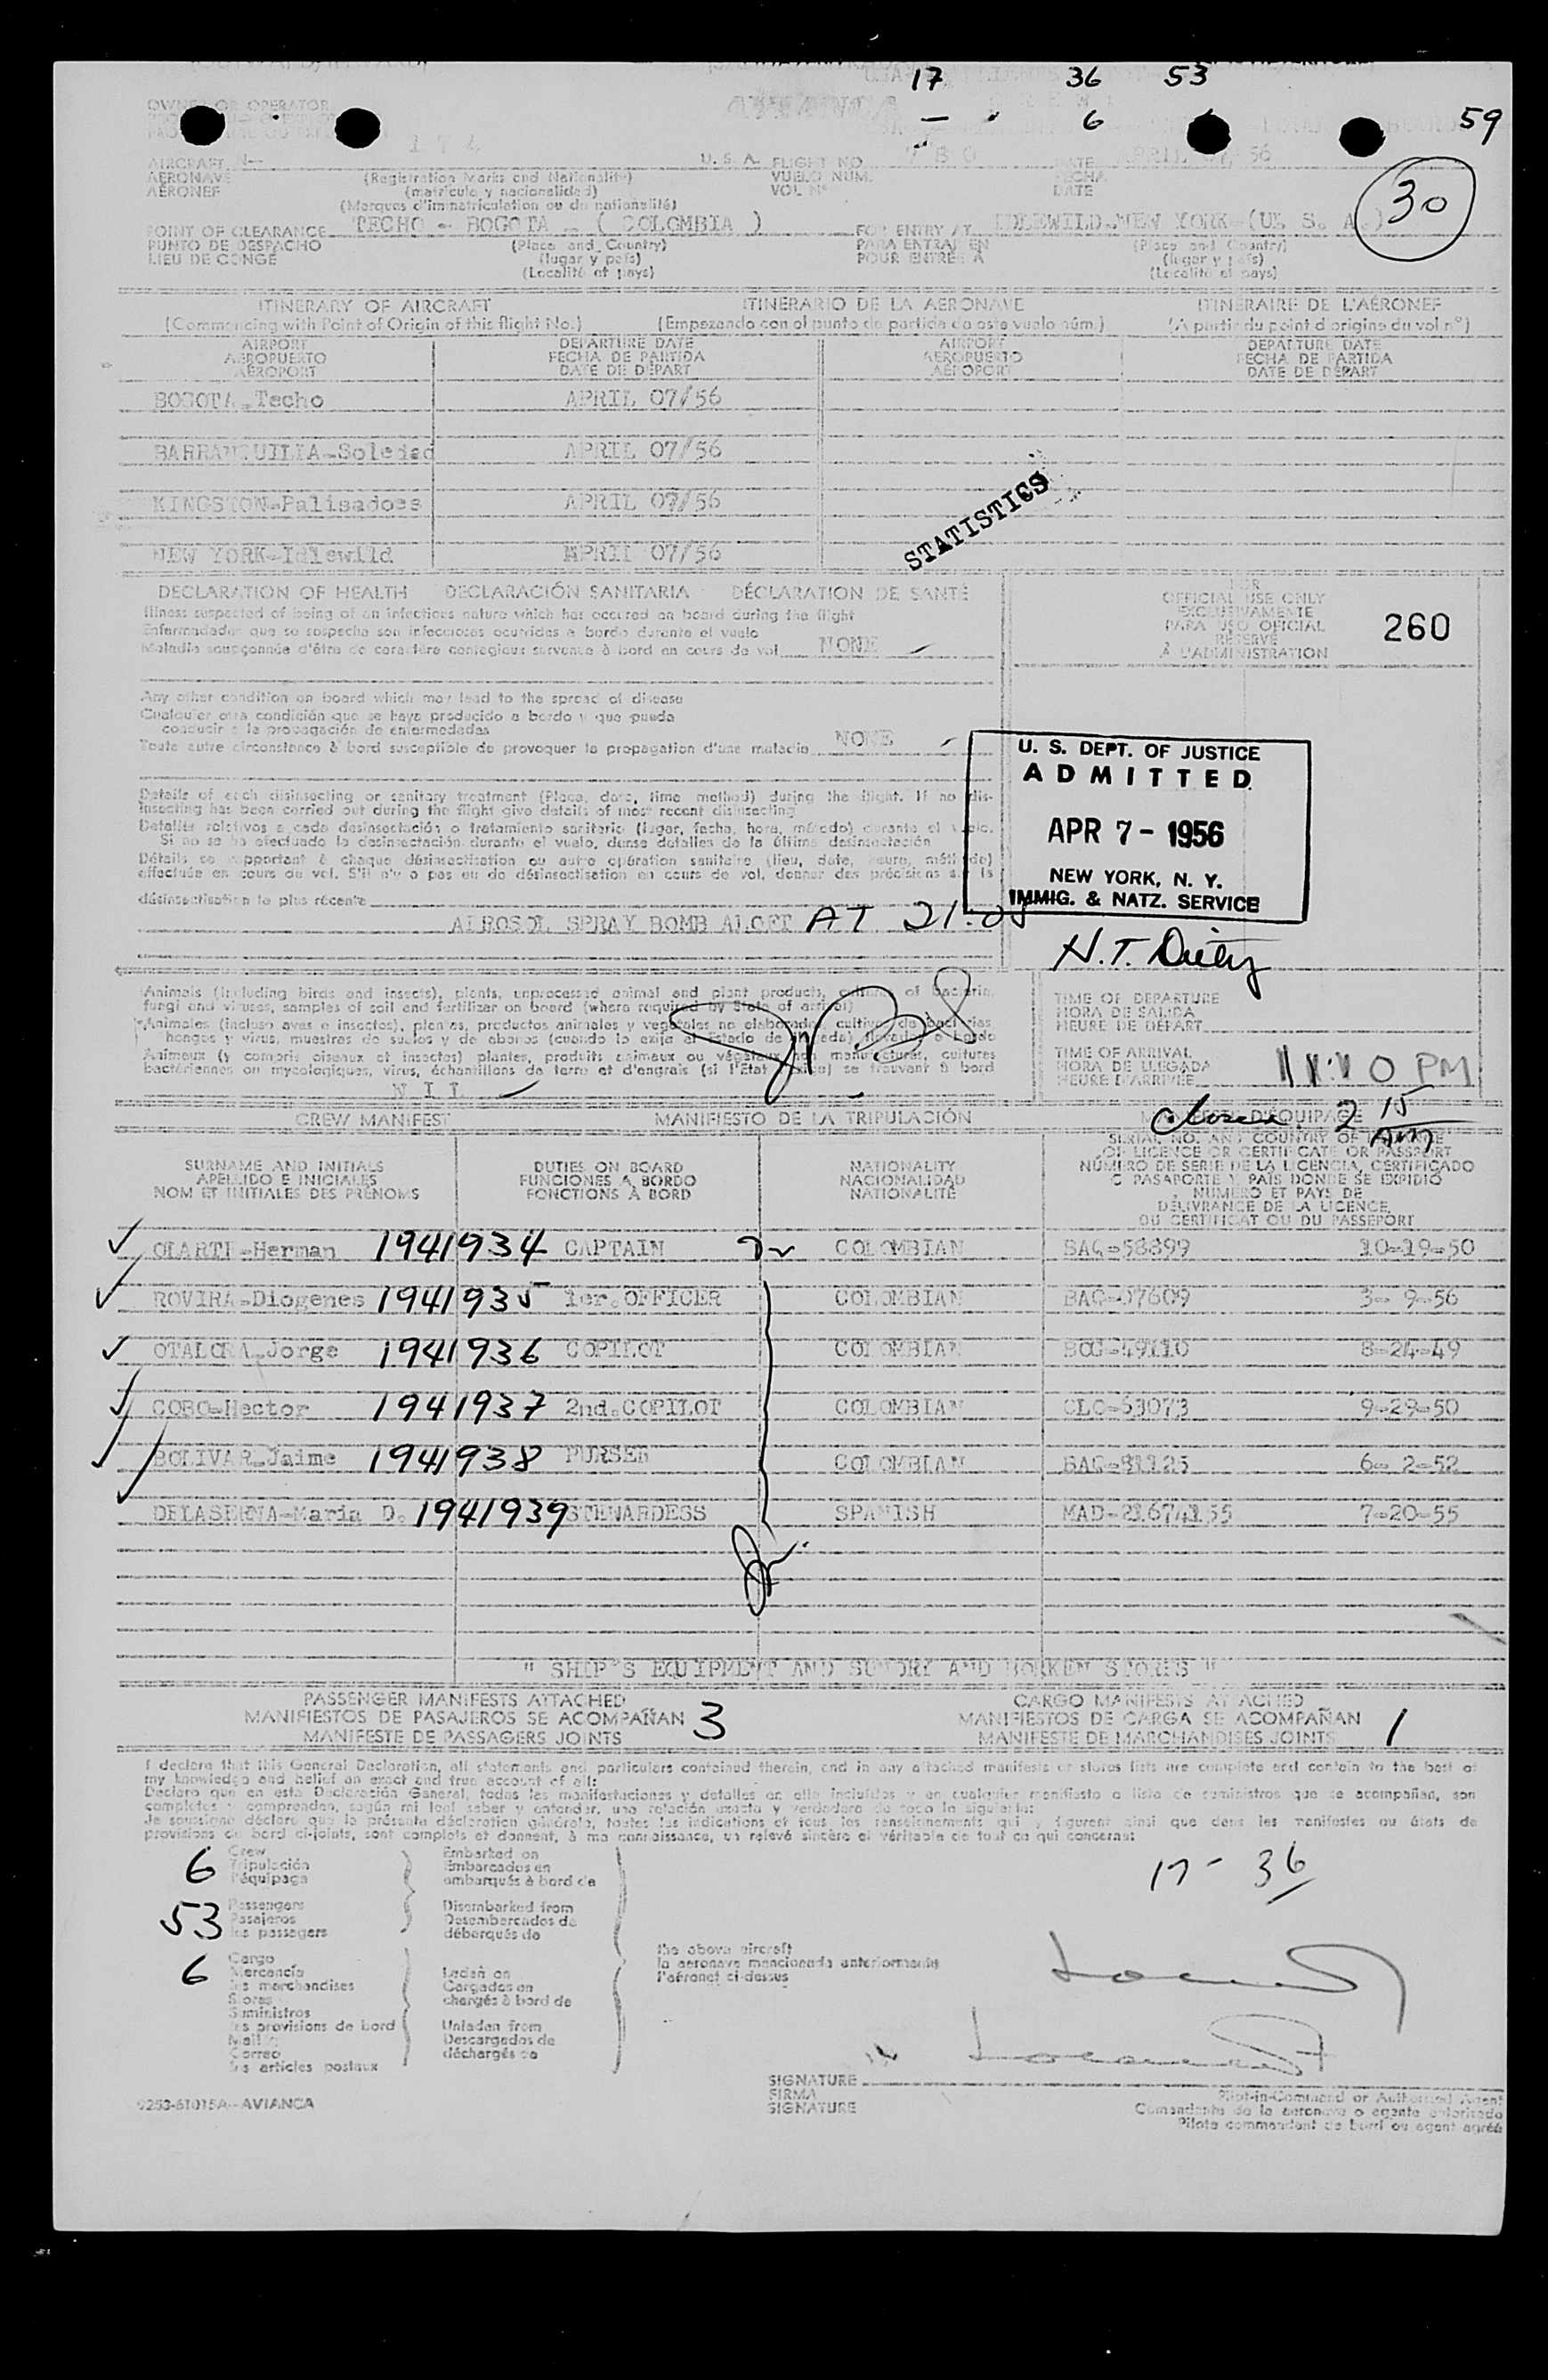 17 36 53
OWNER OR OPERATOR
AVIANCA
— 6 6 59
AIRCRAFT N— U. S. A. FLIGHT NO. 780 DATE APRIL 07/56
AERONAVE (Registration Marks and Nationality) VUELO NUM. FECHA
AÉRONEF (matrícula y nacionalidad) VOL Nº DATE
(Marques d'immatriculation ou de nationalité)
30
POINT OF CLEARANCE TECHO - BOGOTA - ( COLOMBIA ) FOR ENTRY AT IDLEWILD.NEW YORK-(U. S. A.)
PUNTO DE DESPACHO (Place and Country) PARA ENTRAR EN (Place and Country)
LIEU DE CONGÉ (lugar y país) POUR ENTRÉE A (lugar y país)
(Localité et pays) (Localité et pays)
ITINERARY OF AIRCRAFT ITINERARIO DE LA AERONAVE ITINÉRAIRE DE L'AÉRONEF
(Commencing with Point of Origin of this flight No.) (Empezando con el punto de partida de este vuelo núm.) (A partir du point d'origine du vol nº)
AIRPORT DEPARTURE DATE AIRPORT DEPARTURE DATE
AEROPUERTO FECHA DE PARTIDA AEROPUERTO FECHA DE PARTIDA
AÉROPORT DATE DE DÉPART AÉROPORT DATE DE DÉPART
BOGOTA-Techo APRIL 07/56
BARRANQUILLA-Soledad APRIL 07/56
KINGSTON-Palisadoes APRIL 07/56
STATISTICS
NEW YORK-Idlewild APRIL 07/56
DECLARATION OF HEALTH DECLARACIÓN SANITARIA DÉCLARATION DE SANTÉ
FOR
OFFICIAL USE ONLY
EXCLUSIVAMENTE
PARA USO OFICIAL
RÉSERVÉ
À L'ADMINISTRATION
260
Illness suspected of being of an infectious nature which has occured on board during the flight
Enfermedades que se sospecha son infecciosas ocurridas a bordo durante el vuelo
Maladie soupçonnée d'être de caractère contagieux survenue à bord en cours de vol NONE
Any other condition on board which may lead to the spread of disease
Cualquier otra condición que se haya producido a bordo y que pueda
conducir a la propagación de enfermedades
Toute autre circonstance à bord susceptible de provoquer la propagation d'une maladie NONE
U. S. DEPT. OF JUSTICE
ADMITTED
APR 7 - 1956
NEW YORK, N. Y.
IMMIG. & NATZ. SERVICE
Details of each disinsecting or sanitary treatment (Place, date, time method) during the flight. If no dis-
insecting has been carried out during the flight give details of most recent disinsecting
Detalles relativos a cada desinsectación o tratamiento sanitario (lugar, fecha, hora, método) durante el vuelo.
Si no se ha efectuado la desinsectación durante el vuelo, dense detalles de la última desinsectación
Détails se rapportant à chaque désinsectisation ou autre opération sanitaire (lieu, date, heure, méthode)
effectuée en cours de vol. S'il n'y a pas eu de désinsectisation en cours de vol, donner des précisions sur la
désinsectisation la plus récente
AEROSOL SPRAY BOMB ALOFT AT 21:05
Animals (including birds and insects), plants, unprocessed animal and plant products, cultures of bacteria,
fungi and viruses, samples of soil and fertilizer on board (where required by State of arrival)
Animales (incluso aves e insectos), plantas, productos animales y vegetales no elaborados, cultivos de bacterias,
hongos y virus, muestras de suelos y de abonos (cuando lo exija el Estado de llegada) llevados a bordo
Animaux (y compris oiseaux et insectes) plantes, produits animaux ou végétaux non manufacturés, cultures
bactériennes ou mycologiques, virus, échantillons de terre et d'engrais (si l'État exige) se trouvant à bord
N I L
TIME OF DEPARTURE
HORA DE SALIDA
HEURE DE DÉPART
TIME OF ARRIVAL
HORA DE LLEGADA
HEURE D'ARRIVÉE PM
CREW MANIFEST MANIFIESTO DE LA TRIPULACIÓN D'ÉQUIPAGE
2 15 AM
SURNAME AND INITIALS DUTIES ON BOARD NATIONALITY SERIAL NO. AND COUNTRY OF ISSUANCE
APELLIDO E INICIALES FUNCIONES A BORDO NACIONALIDAD OF LICENCE OR CERTIFICATE OR PASSPORT
NOM ET INITIALES DES PRÉNOMS FONCTIONS À BORD NATIONALITÉ NÚMERO DE SERIE DE LA LICENCIA, CERTIFICADO
O PASAPORTE Y PAÍS DONDE SE EXPIDIÓ
NUMÉRO ET PAYS DE
DÉLIVRANCE DE LA LICENCE,
DU CERTIFICAT OU DU PASSEPORT
OLARTE-Herman 1941934 CAPTAIN COLOMBIAN BAQ-58899 10-19-50
ROVIRA-Diogenes 1941935 1er.OFFICER COLOMBIAN BAQ-07609 3- 9-56
OTALORA-Jorge 1941936 COPILOT COLOMBIAN BOG-49110 8-24-49
COBO-Hector 1941937 2nd.COPILOT COLOMBIAN CLO-63073 9-29-50
BOLIVAR-Jaime 1941938 PURSER COLOMBIAN BAQ-81125 6- 2-52
DELASERNA-Maria D. 1941939 STEWARDESS SPANISH MAD-21674155 7-20-55
" SHIP'S EQUIPMENT AND SUNDRY AND BORKEN STORES "
PASSENGER MANIFESTS ATTACHED CARGO MANIFESTS ATTACHED
MANIFIESTOS DE PASAJEROS SE ACOMPAÑAN 3 MANIFIESTOS DE CARGA SE ACOMPAÑAN 1
MANIFESTE DE PASSAGERS JOINTS MANIFESTE DE MARCHANDISES JOINTS
I declare that this General Declaration, all statements and particulars contained therein, and in any attached manifests or stores lists are complete and contain to the best of
my knowledge and belief an exact and true account of all:
Declaro que en esta Declaración General, todas las manifestaciones y detalles en ella incluidos y en cualquier manifiesto o lista de suministros que se acompañan, son
completos y comprenden, según mi leal saber y entender, una relación exacta y verdadera de todo lo siguiente:
Je soussigné déclare que la présente déclaration générale, toutes les indications et tous les renseignements qui y figurent ainsi que dans les manifestes ou états de
provisions de bord ci-joints, sont complets et donnent, à ma connaissance, un relevé sincère et véritable de tout ce qui concerne:
6 Crew Embarked on
Tripulación Embarcados en
l'équipage embarqués à bord de
17 - 36
53 Passengers Disembarked from
Pasajeros Desembarcados de
les passagers débarqués de
the above aircraft
la aeronave mencionada anteriormente
l'aéronef ci-dessus
6 Cargo
Mercancía Laden on
les marchandises Cargados en
Stores chargés à bord de
Suministros
les provisions de bord Unladen from
Mail Descargados de
Correo déchargés de
les articles postaux
SIGNATURE
FIRMA Pilot-in-Command or Authorized Agent
SIGNATURE Comandante de la aeronave o agente autorizado
Pilote commandant de bord ou agent agréé
9253-61015A-AVIANCA